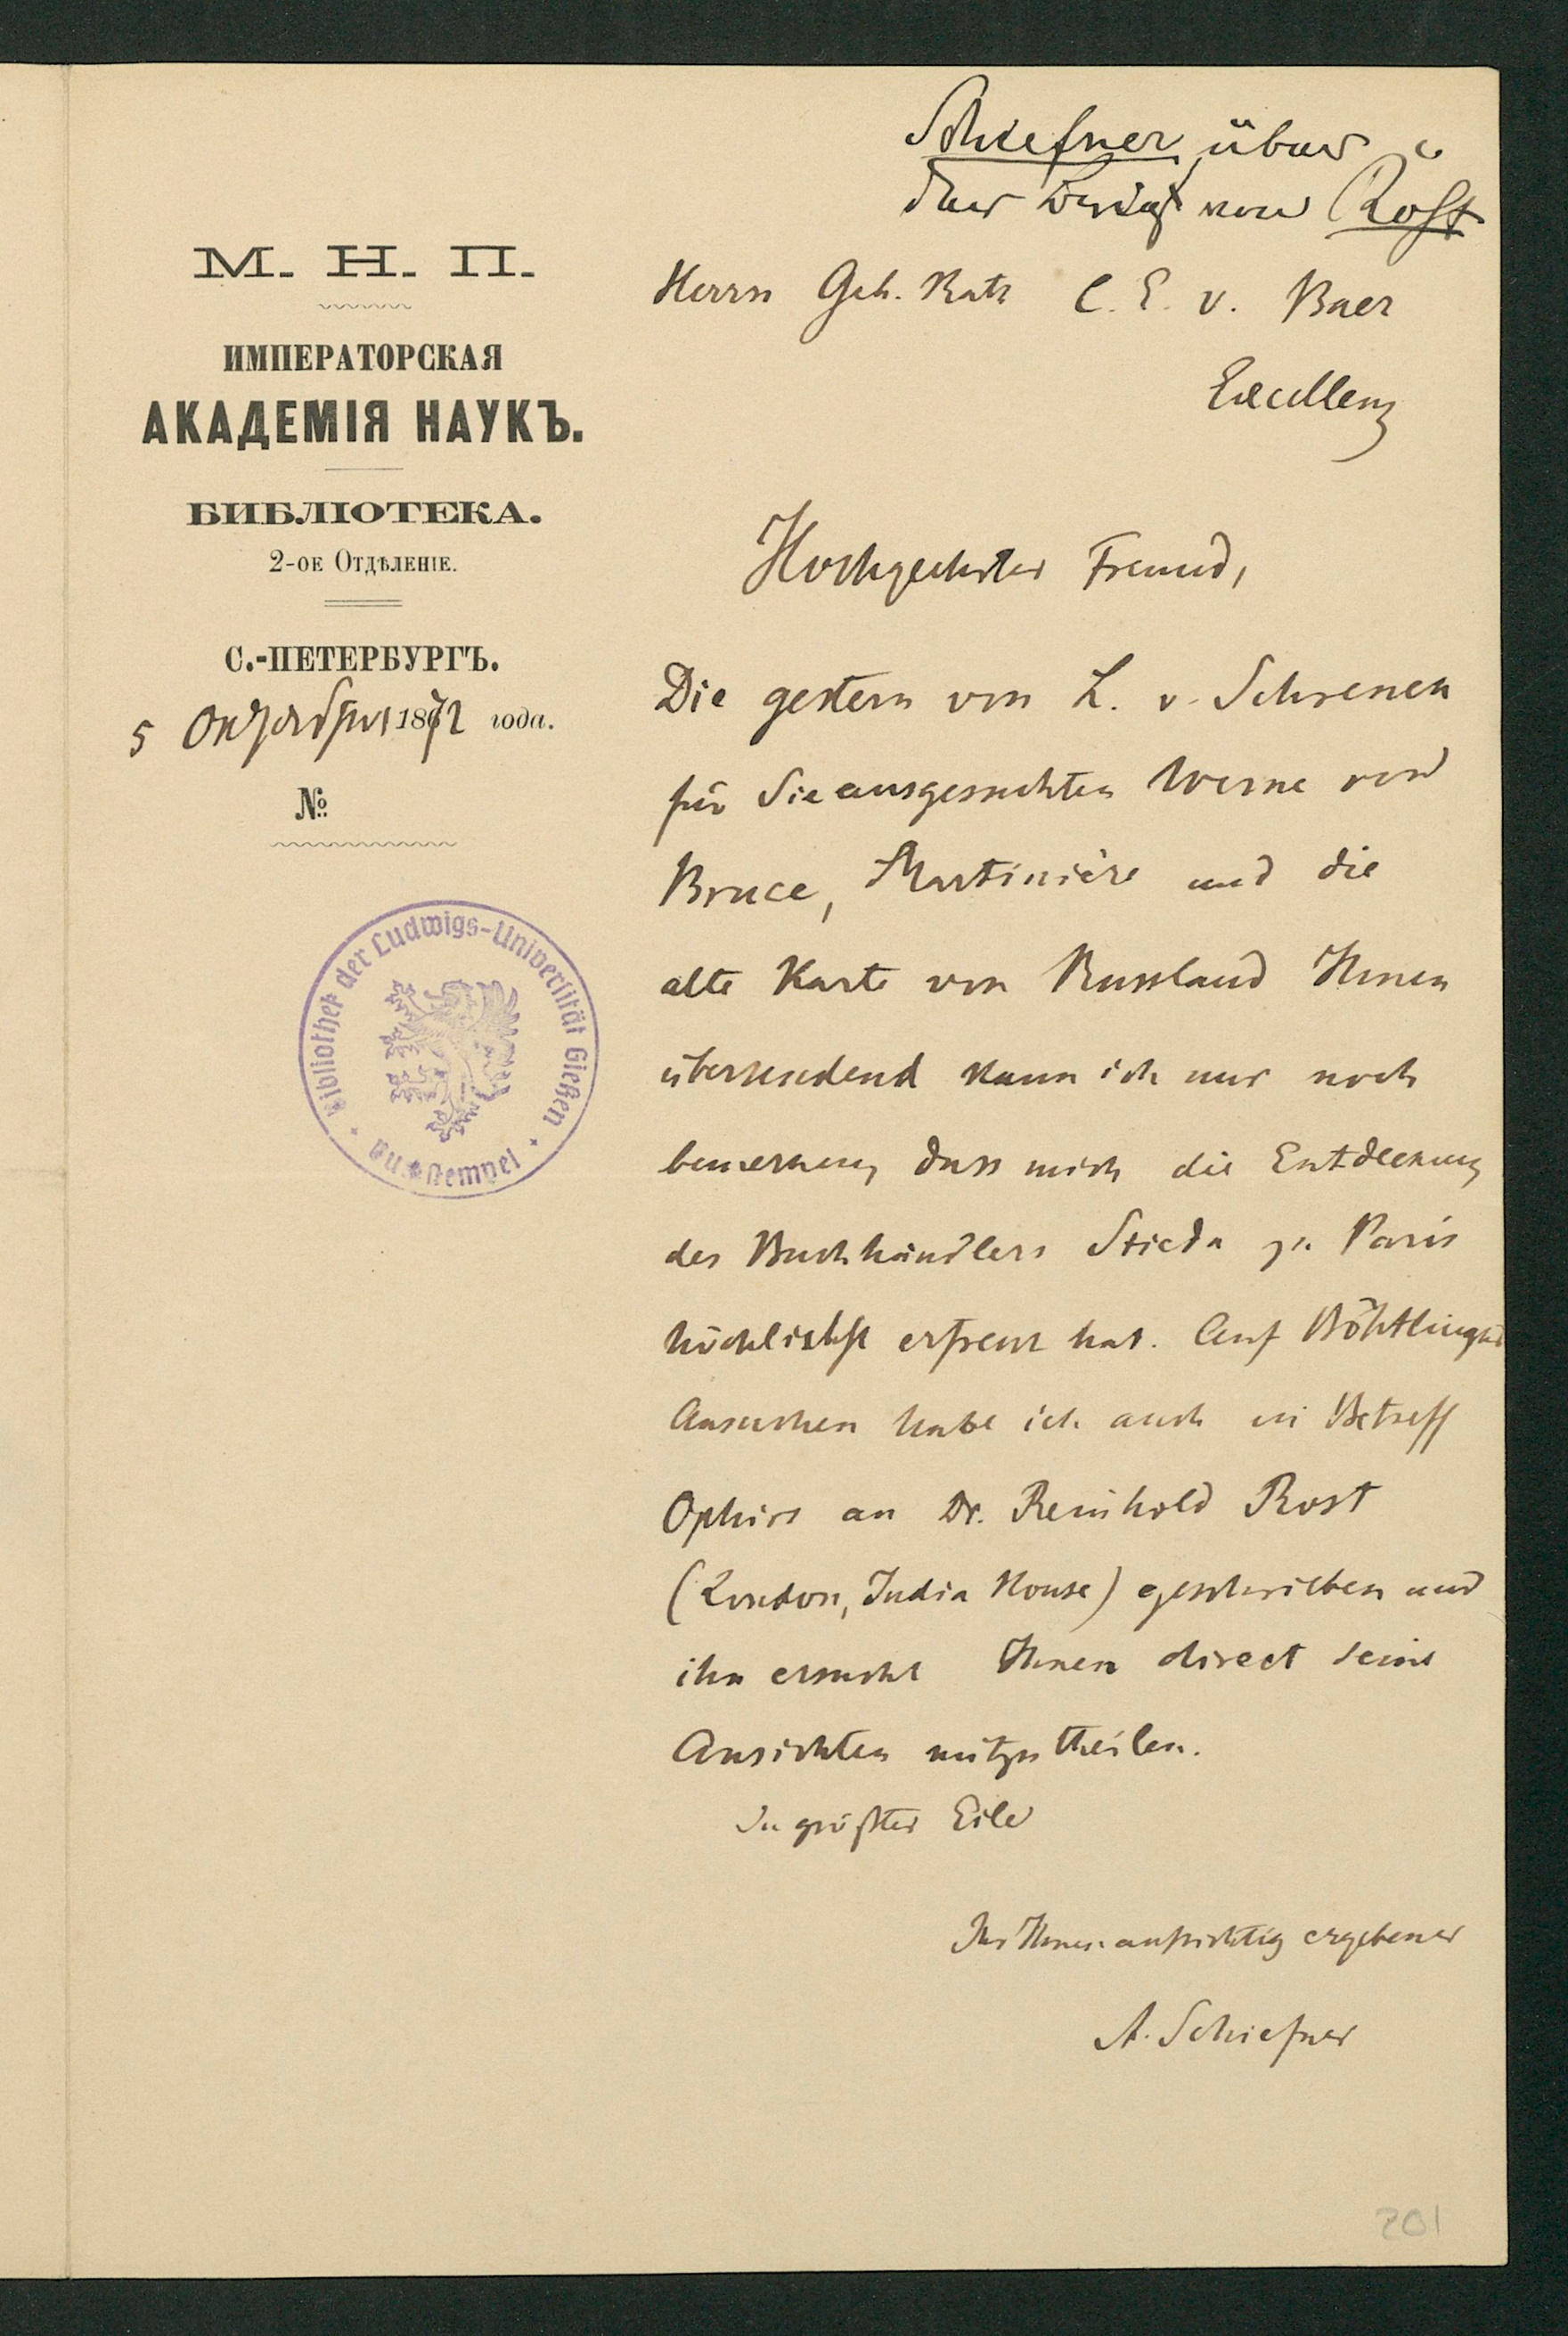 Schiefner über
den Brief von Rost
М. Н. П.
ИМПЕРАТОРСКАЯ
АКАДЕМІЯ НАУКЪ.
БИБЛІОТЕКА.
2-ОЕ ОТДѢЛЕНІЕ.
С.-ПЕТЕРБУРГЪ.
5 Октября 1872 года.
№
Bibliothek der Ludwigs-Universität Gießen
Herrn Geh. Rath C. E. v. Baer
Excellenz
Hochgeehrter Freund,
Die gestern von L. v. Schrenck
für Sie ausgesuchten Werke von
Bruce, Martinière und die
alte Karte von Russland Ihnen
übersendend kann ich nur noch
bemerken, dass mich die Entdeckung
des Buchhändlers Stieda zu Paris
höchlichst erfreut hat. Auf Böhtlingks
Ansuchen habe ich auch in Betreff
Ophirs an Dr. Reinhold Rost
(London, India House) geschrieben und
ihn ersucht Ihnen direct seine
Ansichten mitzutheilen.
In größter Eile
Ihr Ihnen aufrichtig ergebener
A. Schiefner
201